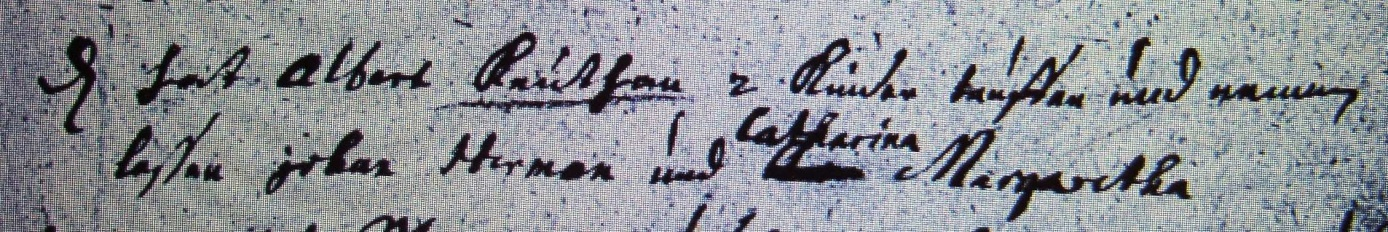 hat Albert 2 Kinder tauffen und nennen
lassen johan Herman und Catharina Margaretha